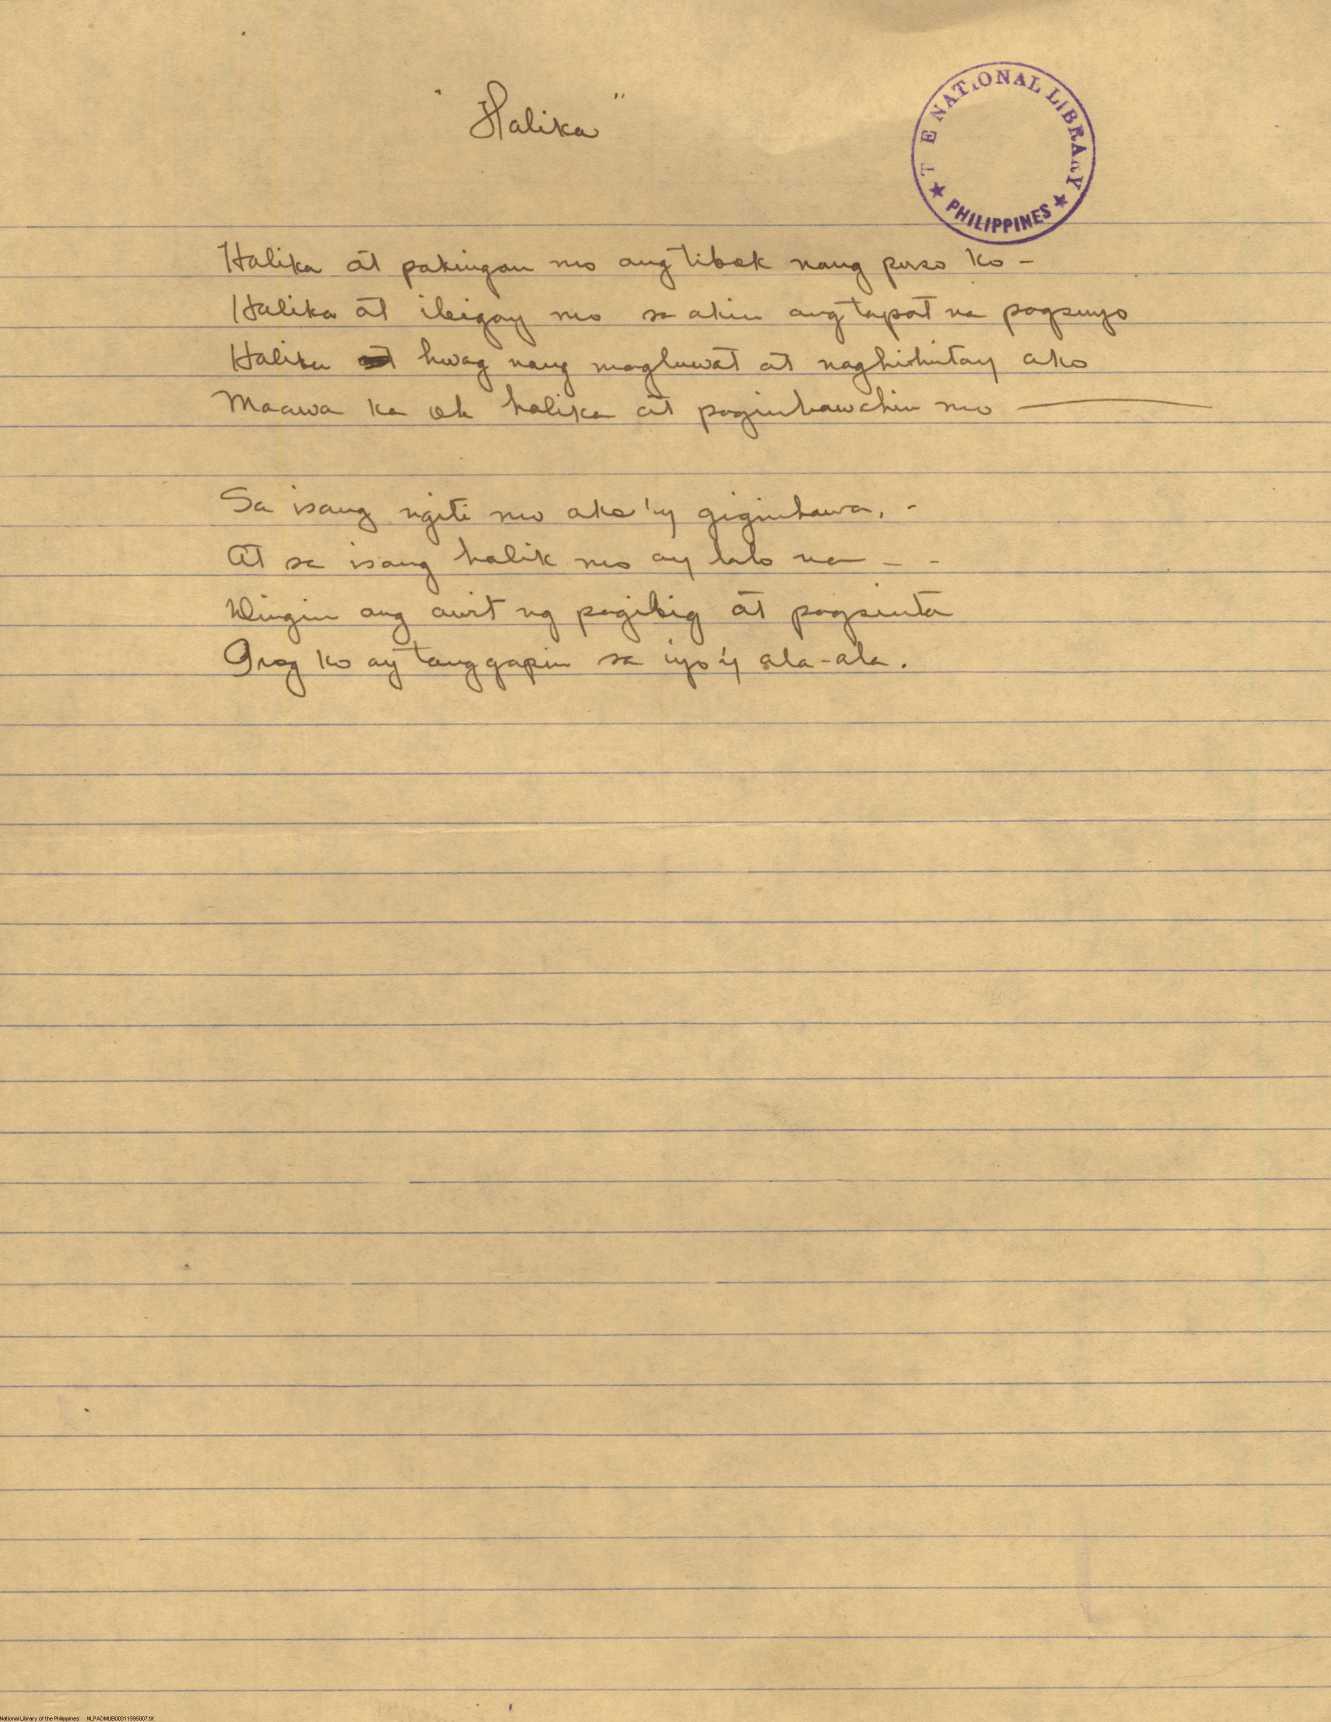 "Halika"
THE NATIONAL LIBRARY
PHILIPPINES
Halika at pakingan mo ang tibok nang puso ko -
Halika at ibigay mo sa akin ang tapat na pagsuyo
Halika at hwag nang magluwat at naghihintay ako
Maawa ka oh halika at paginhawahin mo —
Sa isang ngiti mo ako'y giginhawa, -
At sa isang halik mo ay lalo na - -
Dingin ang awit ng pagibig at pagsinta
Irog ko ay tanggapin sa iyo'y ala-ala.
National Library of the Philippines